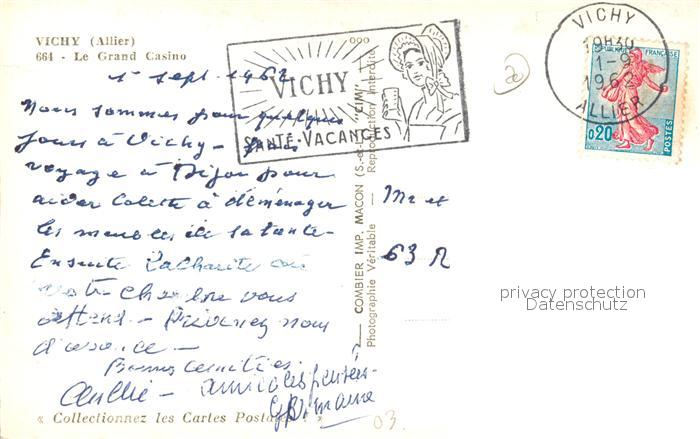 VICHY (Allier)
664 - Le Grand Casino
1er Sept. 1962
VICHY
SANTÉ-VACANCES
VICHY
19H30
1-9
1962
ALLIER
RÉPUBLIQUE FRANÇAISE
0,20
POSTES
Nous sommes pour quelques
jours à Vichy -
voyage à Dijon pour
aider Colette à déménager
les meubles de sa tante -
Ensuite La Charité où
votre chambre vous
attend - Prévenez nous
d'avance -
Bonnes amitiés
amicales pensées
Germaine
Mr et
63 R
COMBIER IMP. MACON (S.-et-L.) "CIM"
Photographie Véritable - Reproduction Interdite
privacy protection
Datenschutz
« Collectionnez les Cartes Postales »
03.